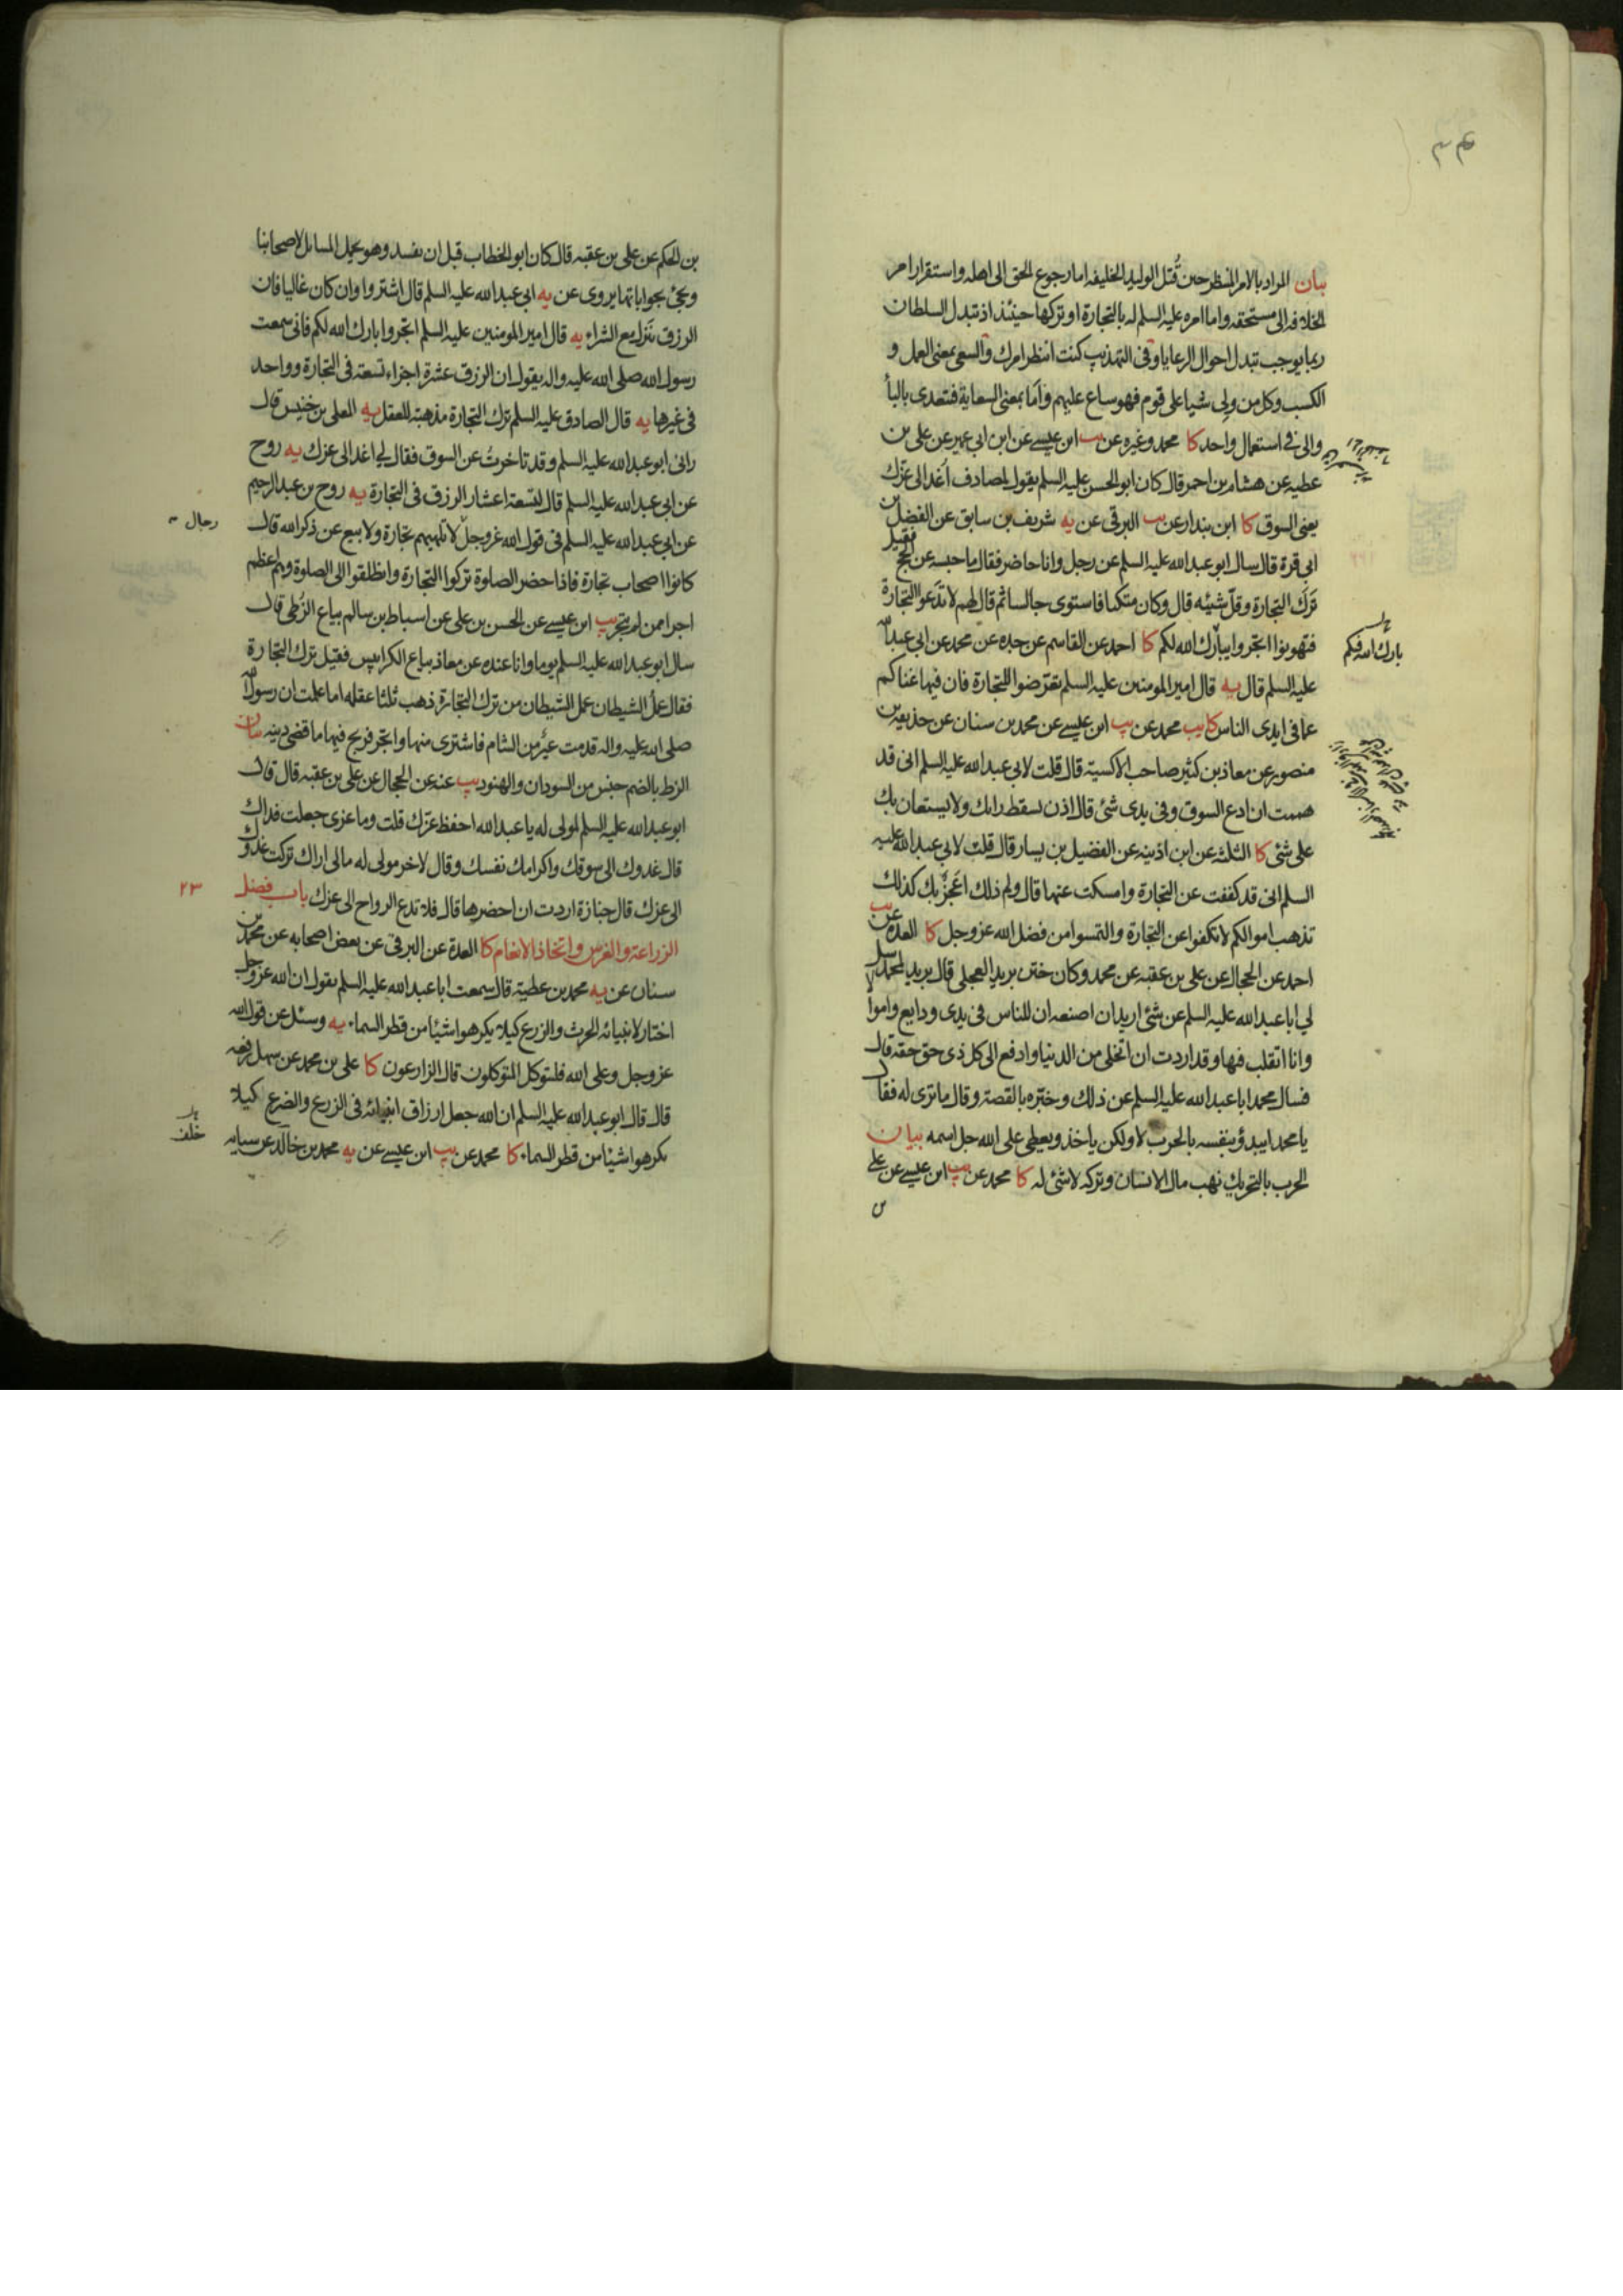 بيان المراد بالامر المنتظر حين قُتل الوليد الخليفه اما رجوع الحق الى اهله واستقرار امر
الخلافه الى مستحقه واما امره عليه السلم له بالتجارة او تركها حينئذ اذ تبدل السلطان
ربما يوجب تبدل احوال الرعايا وفى التهذيب كنت انتظر امرك والسعى بمعنى العمل و
الكسب وكل من ولى شيا على قوم فهو ساع عليهم واما بمعنى السعاية فتعدى بالبأ
والى فى استعمال واحد كا محمد وغيره عن يب ابن عيسے عن ابن ابى عمير عن على بن
عطيه عن هشام بن احمر قال كان ابو الحسن عليه السلم يقول لمصادف اُغد الى عزّك
يعنى السوق كا ابن بندار عن يب البرقى عن يه شريف بن سابق عن الفضل بن
ابى قرة قال سال ابو عبدالله عليه السلم عن رجل وانا حاضر فقال ما حبسه عن الحج فقيل
تَرَك التجارة وقلّ شيئه قال وكان متكئا فاستوى جالسا ثم قال لهم لا تدعوا التجارة
فتهونوا اتجروا يبارك الله لكم كا احمد عن القاسم عن جده عن محمد عن ابى عبدالله
عليه السلم قال يه قال امير المومنين عليه السلم تعرّضوا للتجارة فان فيها غناكم
عما فى ايدى الناس كا يب محمد عن يب ابن عيسے عن محمد بن سنان عن حذيفه بن
منصور عن معاذ بن كثير صاحب الاكسية قال قلت لابى عبدالله عليه السلم انى قد
هممت ان ادع السوق وفى يدى شئ قال اذن يسقط رايك ولا يستعان بك
على شئ كا الثلثه عن ابن اذينه عن الفضيل بن يسار قال قلت لابى عبدالله عليه
السلم انى قد كففت عن التجارة وامسكت عنها قال ولم ذلك اَعَجزٌ بك كذلك
تذهب اموالكم لا تكفوا عن التجارة والتمسوا من فضل الله عز وجل كا العدة عن يب
احمد عن الحجال عن على بن عقبه عن محمد وكان ختن بريد العجلى قال بريد لمحمد سل
لى ابا عبدالله عليه السلم عن شئ اريد ان اصنعه ان للناس فى يدى ودايع واموالا
وانا اتقلب فيها وقد اردت ان اتخلى من الدنيا وادفع الى كل ذى حق حقه قال
فسال محمد ابا عبدالله عليه السلم عن ذلك وخبّره بالقصة وقال ما ترى له فقال
يا محمد ايبدؤ بنفسه بالحرب لا ولكن ياخذ ويعطى على الله جل اسمه بيان
الحرب بالتحريك نهب مال الانسان وتركه لا شئ له كا محمد عن يب ابن عيسے عن على
بارك الله فيكم
بن الحكم عن على بن عقبه قال كان ابو الخطاب قبل ان يفسد وهو يحمل المسائل لاصحابنا
ويجئ بجواباتها يروى عن يه ابى عبدالله عليه السلم قال اشتروا وان كان غاليا فان
الرزق ينزل مع الشراء يه قال امير المومنين عليه السلم اتجروا بارك الله لكم فانى سمعت
رسول الله صلى الله عليه واله يقول ان الرزق عشرة اجزاء تسعة فى التجارة وواحد
فى غيرها يه قال الصادق عليه السلم ترك التجارة مذهبة للعقل يه المعلى بن خنيس قال
رانى ابو عبدالله عليه السلم وقد تاخرتُ عن السوق فقال لى اغد الى عزك يه روح
عن ابى عبدالله عليه السلم قال تسعة اعشار الرزق فى التجارة يه روح بن عبدالرحيم
عن ابى عبدالله عليه السلم فى قول الله عز وجل لا تلهيهم تجارة ولا بيع عن ذكر الله قال
رجال
كانوا اصحاب تجارة فاذا حضر الصلوة تركوا التجارة وانطلقوا الى الصلوة وهم اعظم
اجرا ممن لم يتجر يب ابن عيسے عن الحسن بن على عن اسباط بن سالم بياع الزُطى قال
سال ابو عبدالله عليه السلم يوما وانا عنده عن معاذ بياع الكرابيس فقيل ترك التجارة
فقال عملُ الشيطان عمل الشيطان من ترك التجارة ذهب ثلثا عقله اما علمت ان رسول الله
صلى الله عليه واله قدمت عير من الشام فاشترى منها واتجر فربح فيها ما قضى دينه بيان
الزط بالضم جنس من السودان والهنود يب عنه عن الحجال عن على بن عقبه قال قال
ابو عبدالله عليه السلم لمولى له يا عبدالله احفظ عزّك قلت وما عزى جعلت فداك
قال غدوك الى سوقك واكرامك نفسك وقال لاخر مولى له مالى اراك تركت غدوّك
الى عزك قال جنازة اردت ان احضرها قال فلا تدع الرواح الى عزك باب فضل
٢٣
الزراعة والغرس واتخاذ الانعام كا العدة عن البرقى عن بعض اصحابه عن محمد بن
سنان عن يه محمد بن عطية قال سمعت ابا عبدالله عليه السلم يقول ان الله عز وجل
اختار لانبيائه الحرث والزرع كيلا يكرهوا شيئا من قطر السماء يه وسئل عن قول الله
عز وجل وعلى الله فليتوكل المتوكلون قال الزارعون كا على بن محمد عن سهل رفعه
قال قال ابو عبدالله عليه السلم ان الله جعل ارزاق انبيائه فى الزرع والضرع كيلا
يكرهوا شيئا من قطر السماء كا محمد عن يب ابن عيسے عن يه محمد بن خالد عن سيابه
خلف